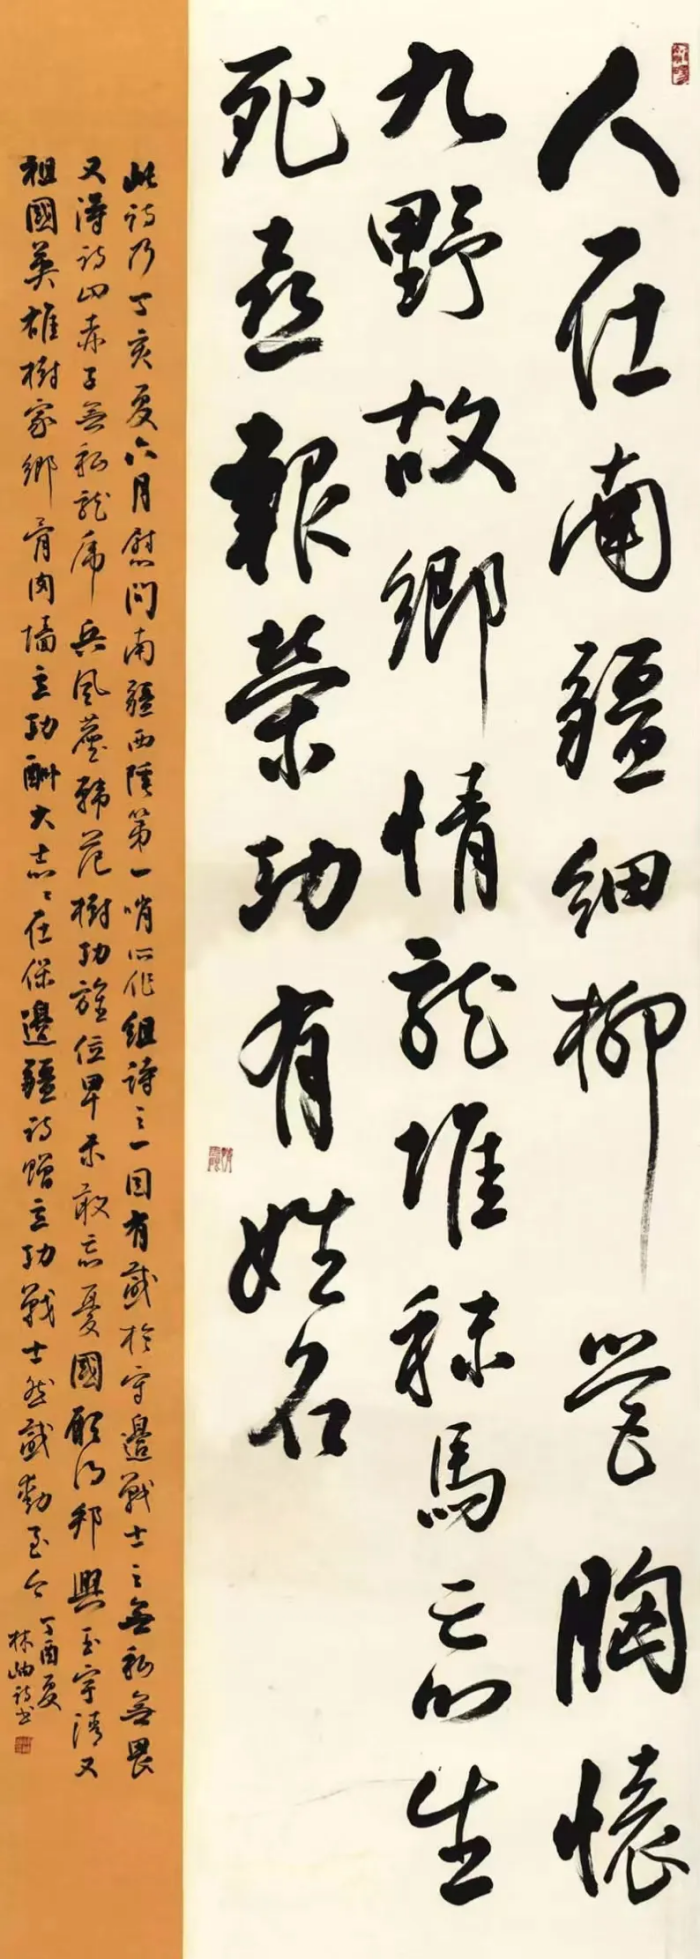 人在南疆细柳营胸懷
九野故鄉情龍堆秣馬忘生
死意報榮功有姓名
此詩乃丁亥夏六月慰問南疆西陲第一哨所作組詩之一因有感於守邊戰士之無私無畏
又得詩四赤子無私龍虎兵風蓬韓范樹功旌位卑未敢忘憂國願得邦興玉宇清又
祖國英雄樹家鄉骨肉墻立功酬大志志在保邊疆詩贈立功戰士然感動至今
丁酉夏
林岫詩書